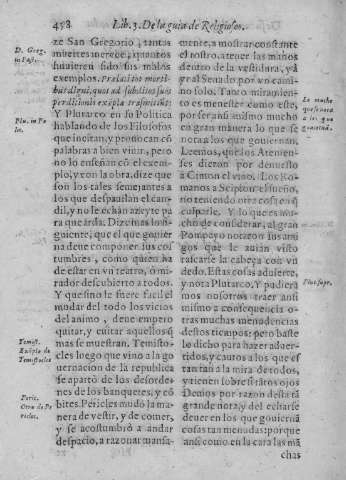 458 Lib. 3. De la guia de Religiosos.
D. Greg.
in Past.
ze San Gregorio, tantas
muertes merece, quantos
huuieren sido sus malos
exemplos.
perditionis
Plu. in Po
lit.
Y Plutarco en su Politica
hablando de los Filosofos
que incitan, y prouocan cõ
palabras a bien viuir, pero
no lo enseñan cõ el exem-
plo, y con la obra, dize que
son los tales semejantes a
los que despauilan el can-
dil, y no le echan azeyte pa
ra que arda. Dize mas lo si-
guiente; que el que gouier
na deue componer sus cos
tumbres, como quien ha
de estar en vn teatro, ô mi-
rador descubierto a todos.
Y que sino le fuere facil el
mudar del todo los vicios
del animo, deue empero
quitar, y euitar aquellos q̃
mas se muestran. Temisto-
Temist.
Exẽplo de
Temistocles
cles luego que vino a la go
uernacion de la republica
se apartò de los desorde-
nes de los banquetes, y cõ
bites. Pericles mudò la ma-
Peric.
Otro de Pe
ricles.
nera de vestir, y de comer,
y se acostumbrò a andar
despacio, a razonar mansa-
mente, a mostrar constante
el rostro, a tener las manos
dentro de la vestidura, y a
yr al Senado por vn cami-
no solo. Tanto miramien-
to es menester como este,
por ser assi que se nota en
gran manera lo que se
nota en los que gouiernan.
Lo mucho
que se nota
a los que
gouiernã.
Leemos, que los Atenien-
ses dieron por denuesto
a Cimon el vino. Los Ro-
manos a Scipion el sueño,
no teniendo otra cosa en q̃
culparle. Y lo que es mu-
cho de considerar, al gran
Pompeyo notaron sus ami
gos que le auian visto
rascarse la cabeça con vn
dedo. Estas cosas aduierte,
y nota Plutarco. Y pudiera
Plut. supr.
mos nosotros traer assi
mismo a consequencia o-
tras muchas menudencias
destos tiempos; pero baste
lo dicho para hazer aduer-
tidos, y cautos a los que es
tan a la mira de todos,
y tienen sobre si tãtos ojos
Demos por razon desta tã
grande nota, y del echarse
de uer en los que gouiernã
cosas tan menudas: porque
assi como en la cara las mã
chas